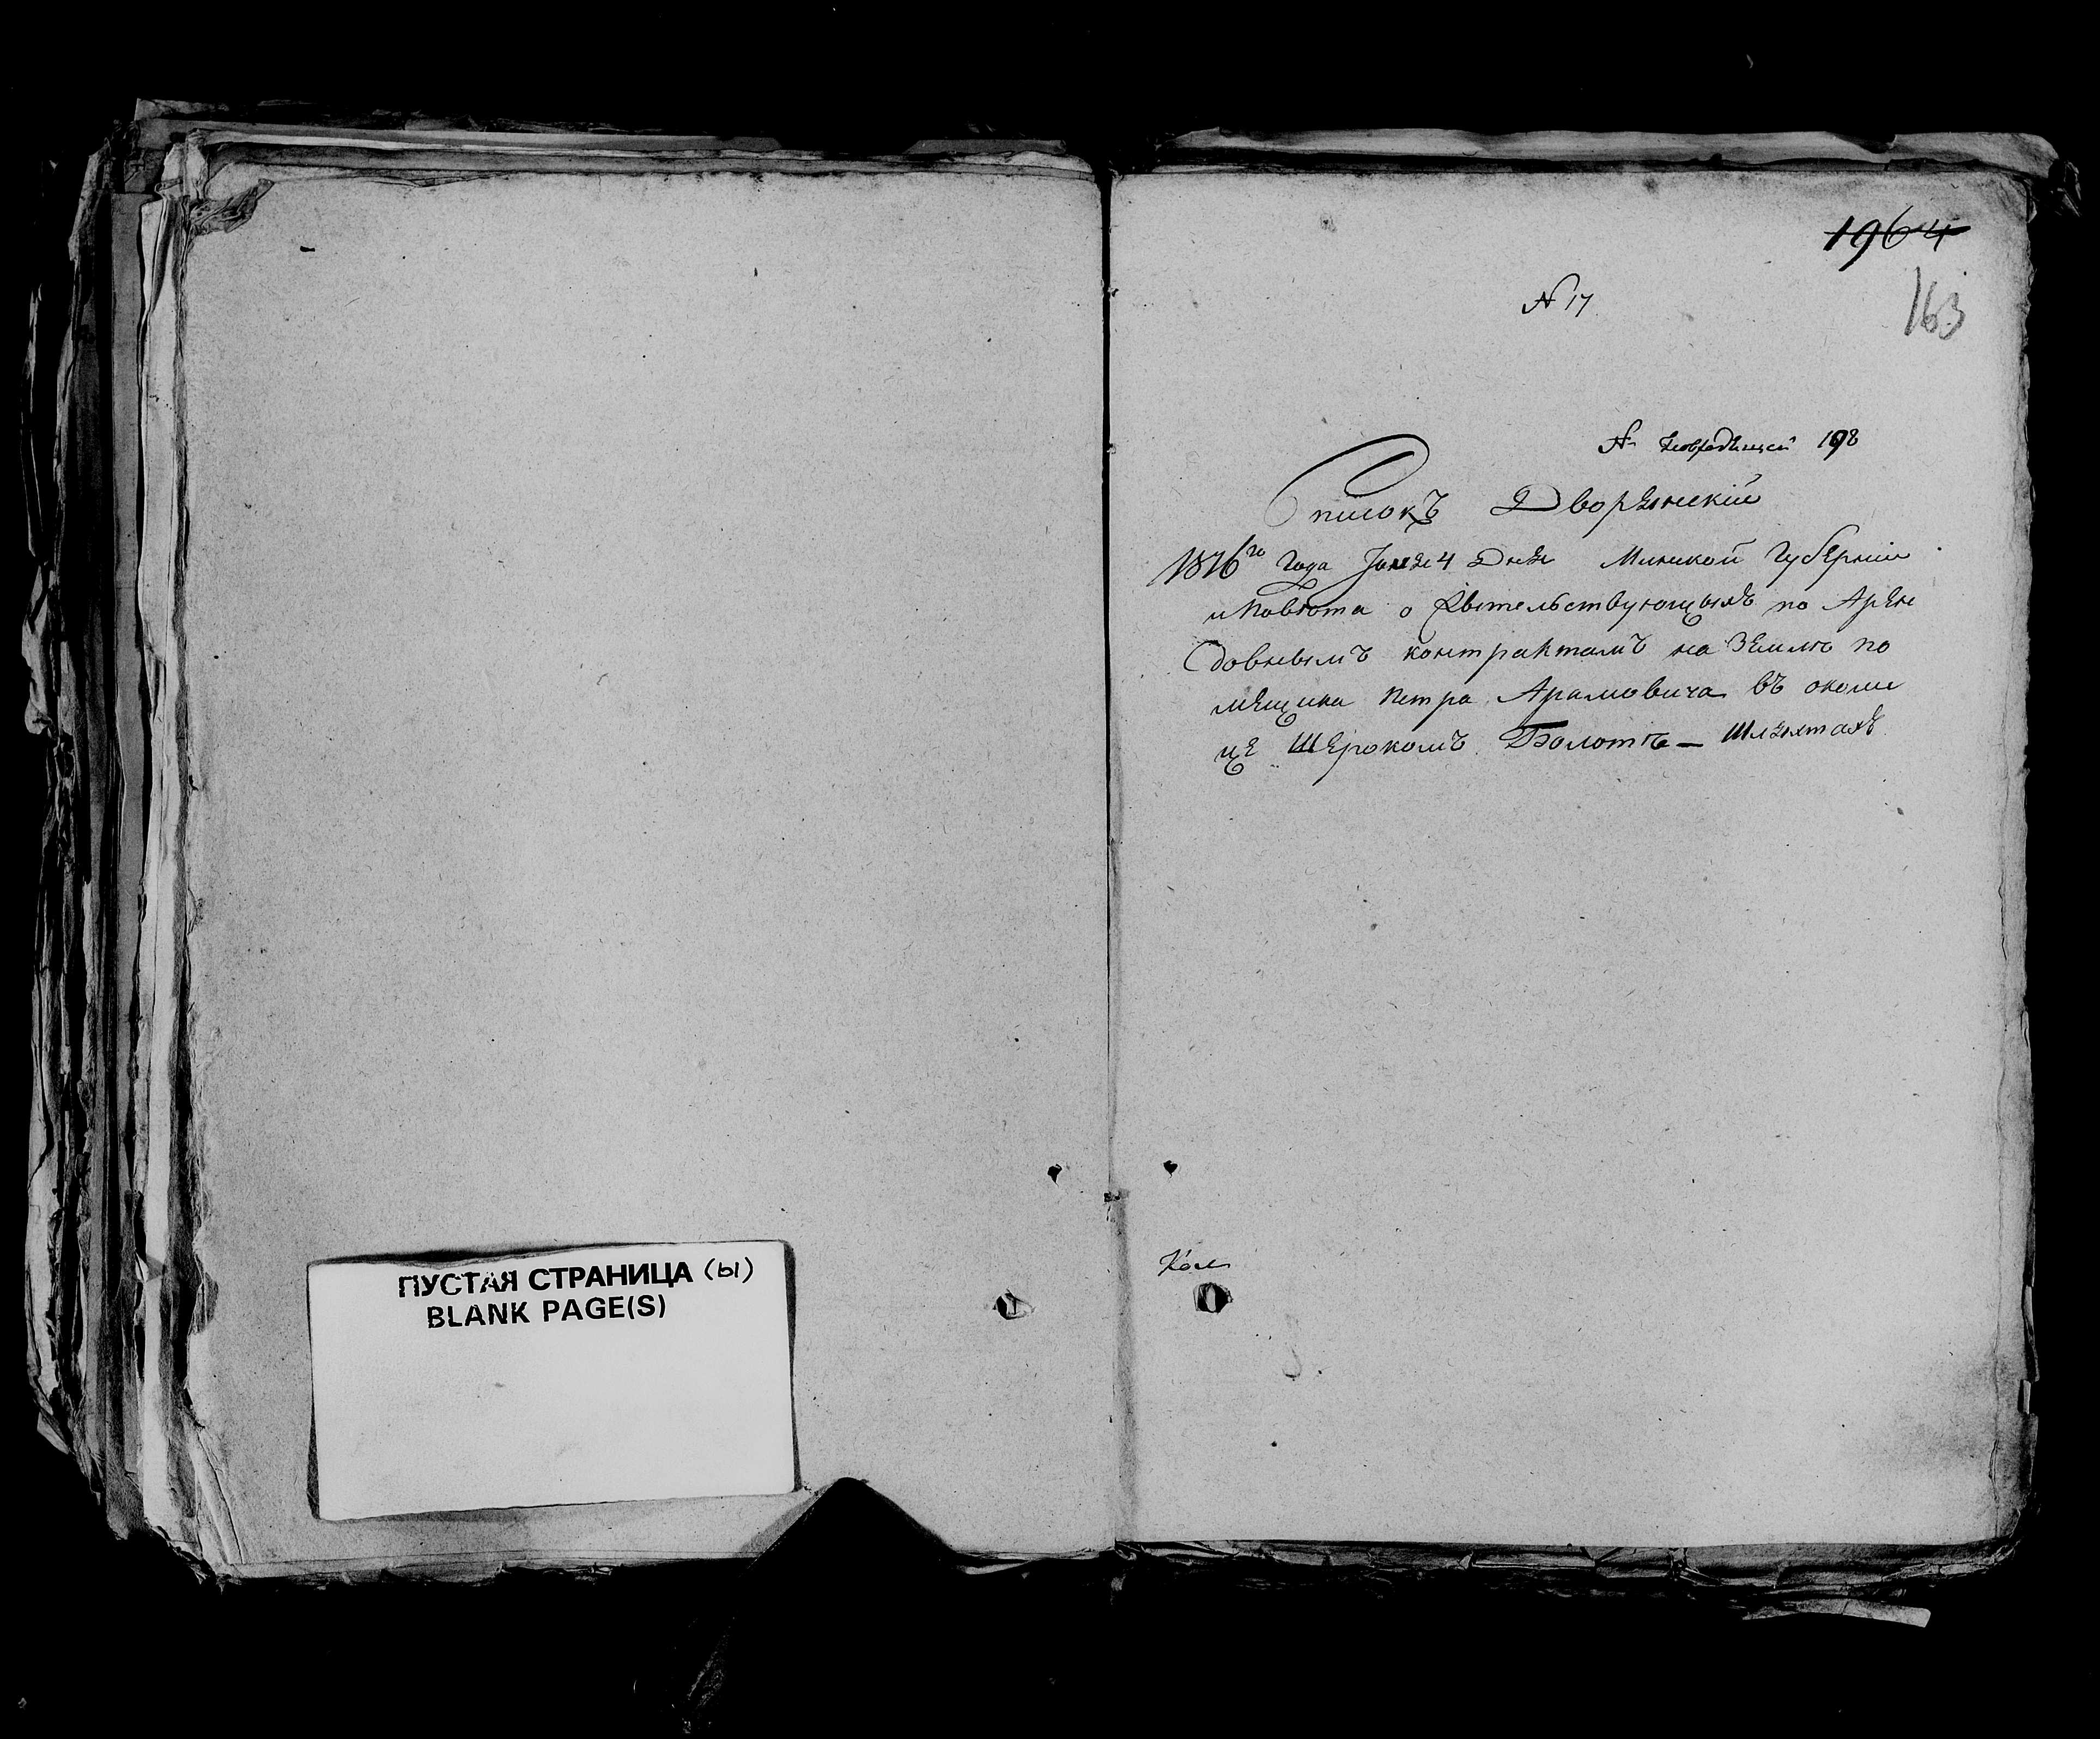 ПУСТАЯ СТРАНИЦА (ы)
BLANK PAGE(S)
1964
163
N 17
N 198
Списокъ Дворянскій
1816го года Іюня 4 Дня Минской Губерніи
и Повѣта о жительствующыхъ по Арен
довнымъ контрактамъ на Землю по
мещика Петра Арамовича въ околи
це Шероком Болотѣ — Шляхтахъ